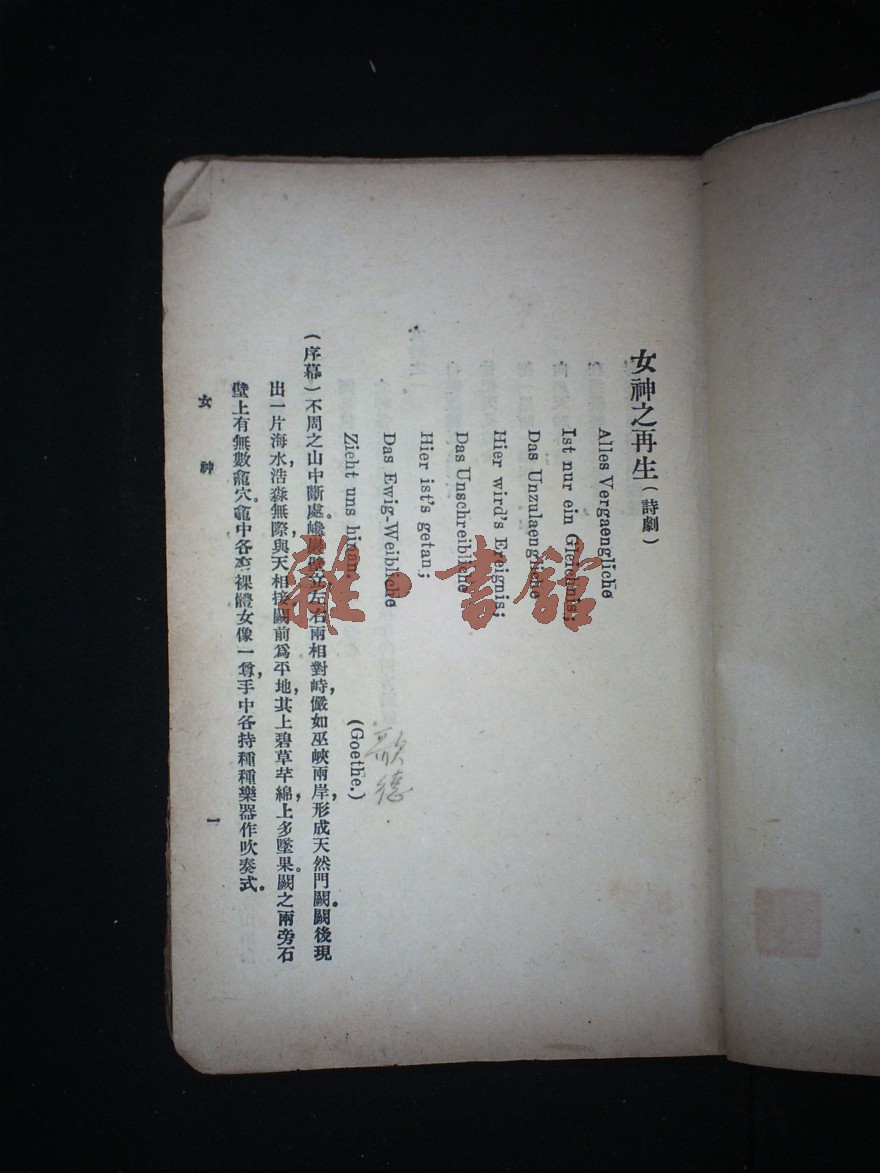 女神之再生(詩劇)
Alles Vergaengliche
Ist nur ein Gleichnis;
Das Unzulaengliche
Hier wird's Ereignis;
Das Unschreibliche
Hier ist's getan;
Das Ewig-Weibliche
Zieht uns hinan.
(Goethe.)
歌德
(序幕)不周之山中斷處。巉巖壁立,左右兩相對峙,儼如巫峽兩岸,形成天然門闕。闕後現
出一片海水,浩淼無際,與天相接。闕前爲平地,其上碧草芊綿,上多墜果。闕之兩旁石
壁上有無數龕穴。龕中各有裸體女像一尊,手中各持種種樂器作吹奏式。
女神
一
雜·書館